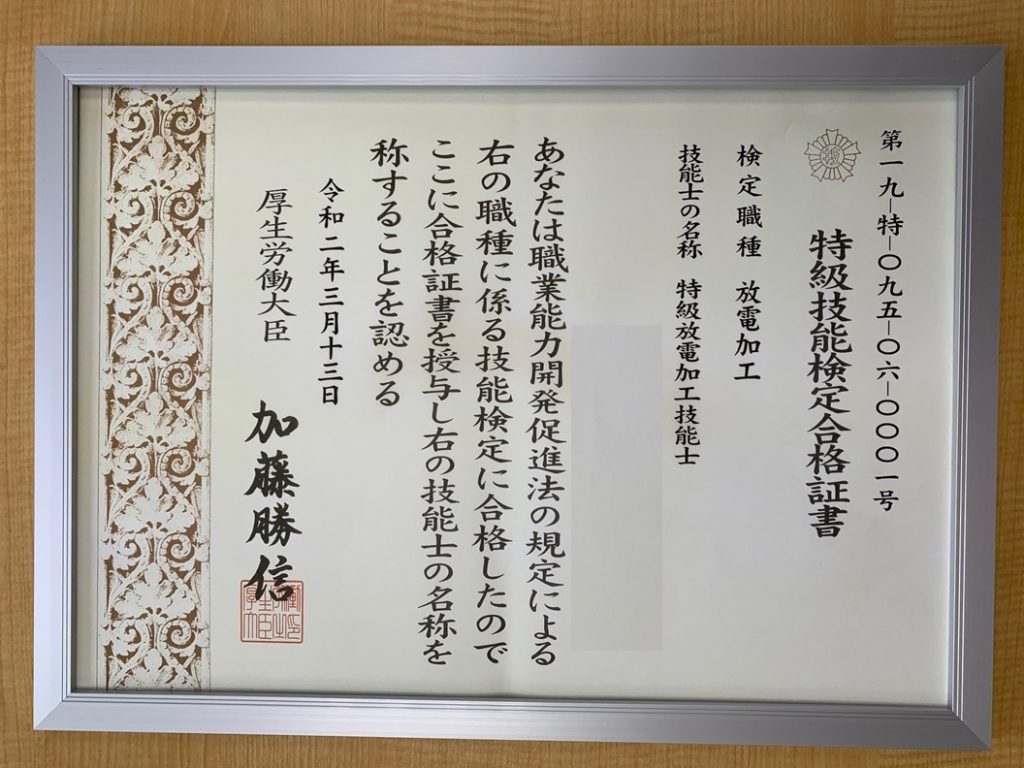 第一九-特-〇九五-〇六-〇〇〇一号
特級技能検定合格証書
検定職種 放電加工
技能士の名称 特級放電加工技能士
あなたは職業能力開発促進法の規定による
右の職種に係る技能検定に合格したので
ここに合格証書を授与し右の技能士の名称を
称することを認める
令和二年三月十三日
厚生労働大臣 加藤勝信